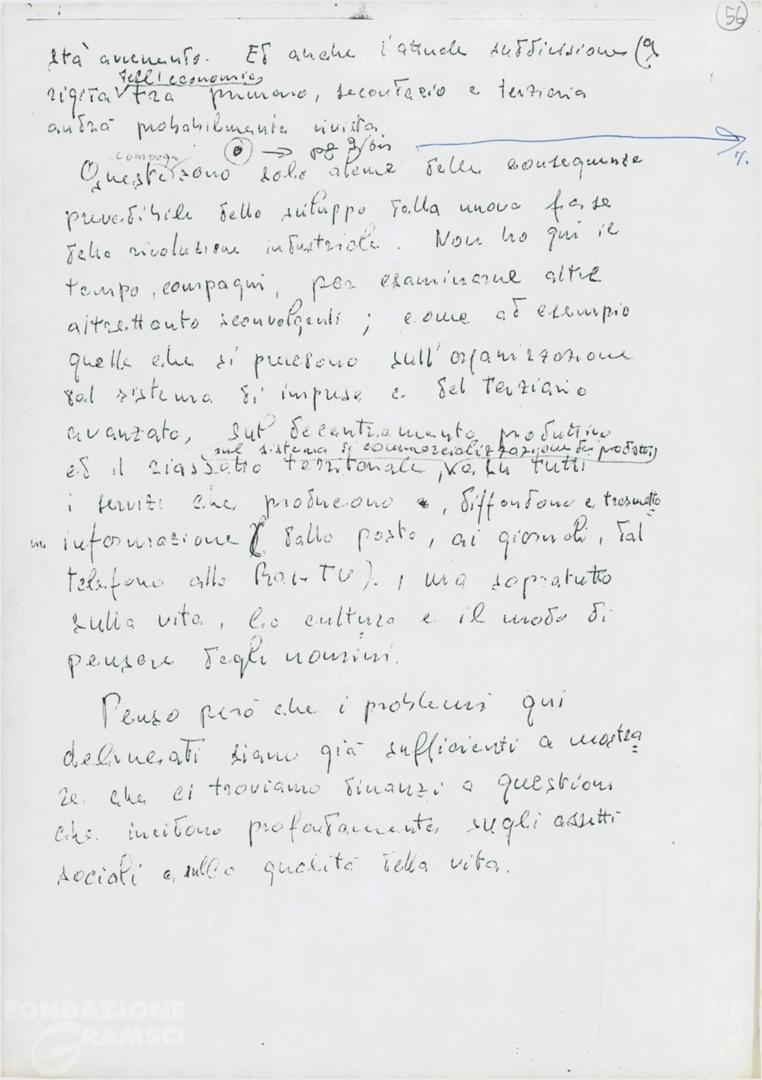 56
sta avvenendo. Ed anche l'attuale suddivisione
dell'economia
rigida tra primario, secondario e terziario
andrà probabilmente rivista.
→ pg 9/bis
compagni
Queste sono solo alcune delle conseguenze
prevedibili dello sviluppo della nuova fase
della rivoluzione industriale. Non ho qui il
tempo, compagni, per esaminarne altre
altrettanto sconvolgenti; come ad esempio
quelle che si precisono sull'organizzazione
del sistema di imprese e del terziario
avanzato, sul decentramento produttivo
sul sistema di commercializzazione dei prodotti,
ed il riassetto territoriale, su tutti
i servizi che producono, diffondono e trasmetto
no informazione (dalle poste, ai giornali, dal
telefono alla Rai-TV), ma sopratutto
sulla vita, la cultura e il modo di
pensare degli uomini.
Penso però che i problemi qui
delineati siano già sufficienti a mostra
re che ci troviamo dinanzi a questioni
che incidono profondamente sugli assetti
sociali e sulla qualità della vita.
FONDAZIONE
GRAMSCI